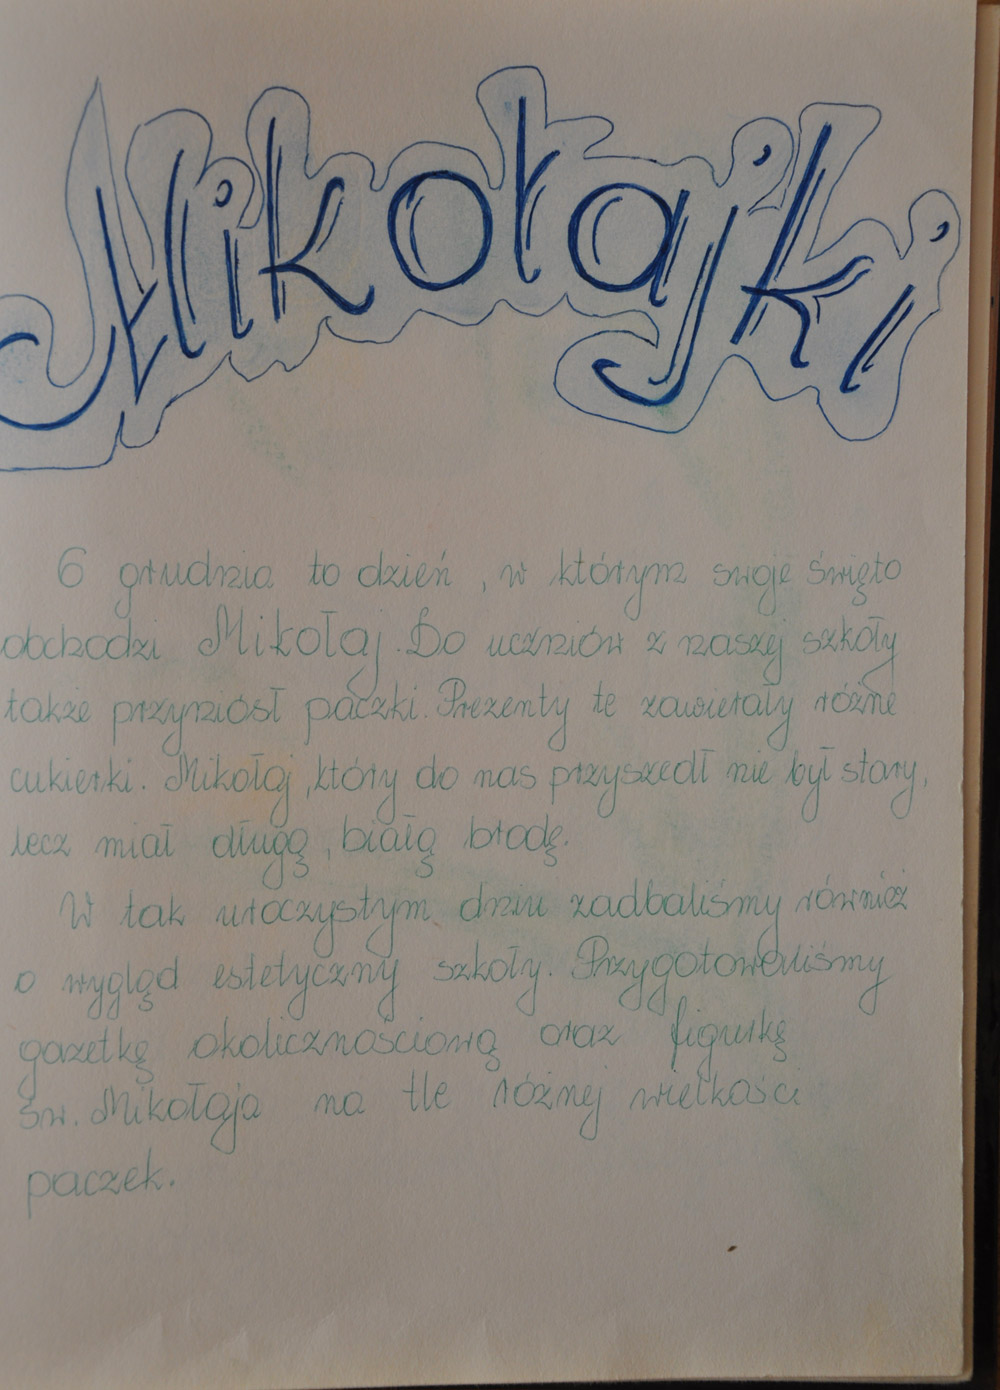 Mikołajki
6 grudnia to dzień, w którym swoje święto
obchodzi Mikołaj. Do uczniów z naszej szkoły
także przyniósł paczki. Prezenty te zawierały różne
cukierki. Mikołaj, który do nas przyszedł nie był stary,
lecz miał długą, białą brodę.
W tak uroczystym dniu zadbaliśmy również
o wygląd estetyczny szkoły. Przygotowaliśmy
gazetkę okolicznościową oraz figurkę
św. Mikołaja na tle różnej wielkości
paczek.